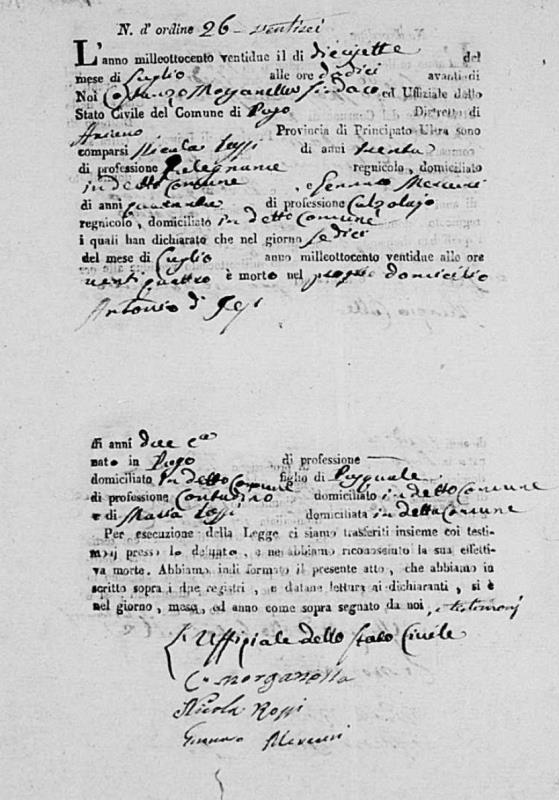 N. d'ordine 26 ventisei
L'anno milleottocento ventidue il dì diecisette del
mese di Luglio alle ore dodici avanti di
Noi Costanzo Morganella Sindaco ed Uffiziale dello
Stato Civile del Comune di Pago Distretto di
Provincia di Principato Ultra sono
comparsi Nicola Rossi di anni trenta
di professione Falegname regnicolo, domiciliato
in detto Comune e Gennaro Mercuri
di anni quaranta di professione Calzolajo
regnicolo, domiciliato in detto Comune
i quali han dichiarato che nel giorno sedici
del mese di Luglio anno milleottocento ventidue alle ore
venti quattro è morto nel proprio domicilio
Antonio di
di anni due
nato in Pago di professione
domiciliato in detto Comune figlio di Pasquale
di professione Contadino domiciliato in detto Comune
e di Maria Rossi domiciliata in detto Comune
Per esecuzione della Legge ci siamo trasferiti insieme coi testi-
monj presso lo defunto, e ne abbiamo riconosciuto la sua effetti-
va morte. Abbiamo indi formato il presente atto, che abbiamo in-
scritto sopra i due registri, e datane lettura ai dichiaranti, si è
nel giorno, mese, ed anno come sopra segnato da noi, e testimonj
L'Uffiziale dello Stato Civile
Morganella
Nicola Rossi
Gennaro Mercuri